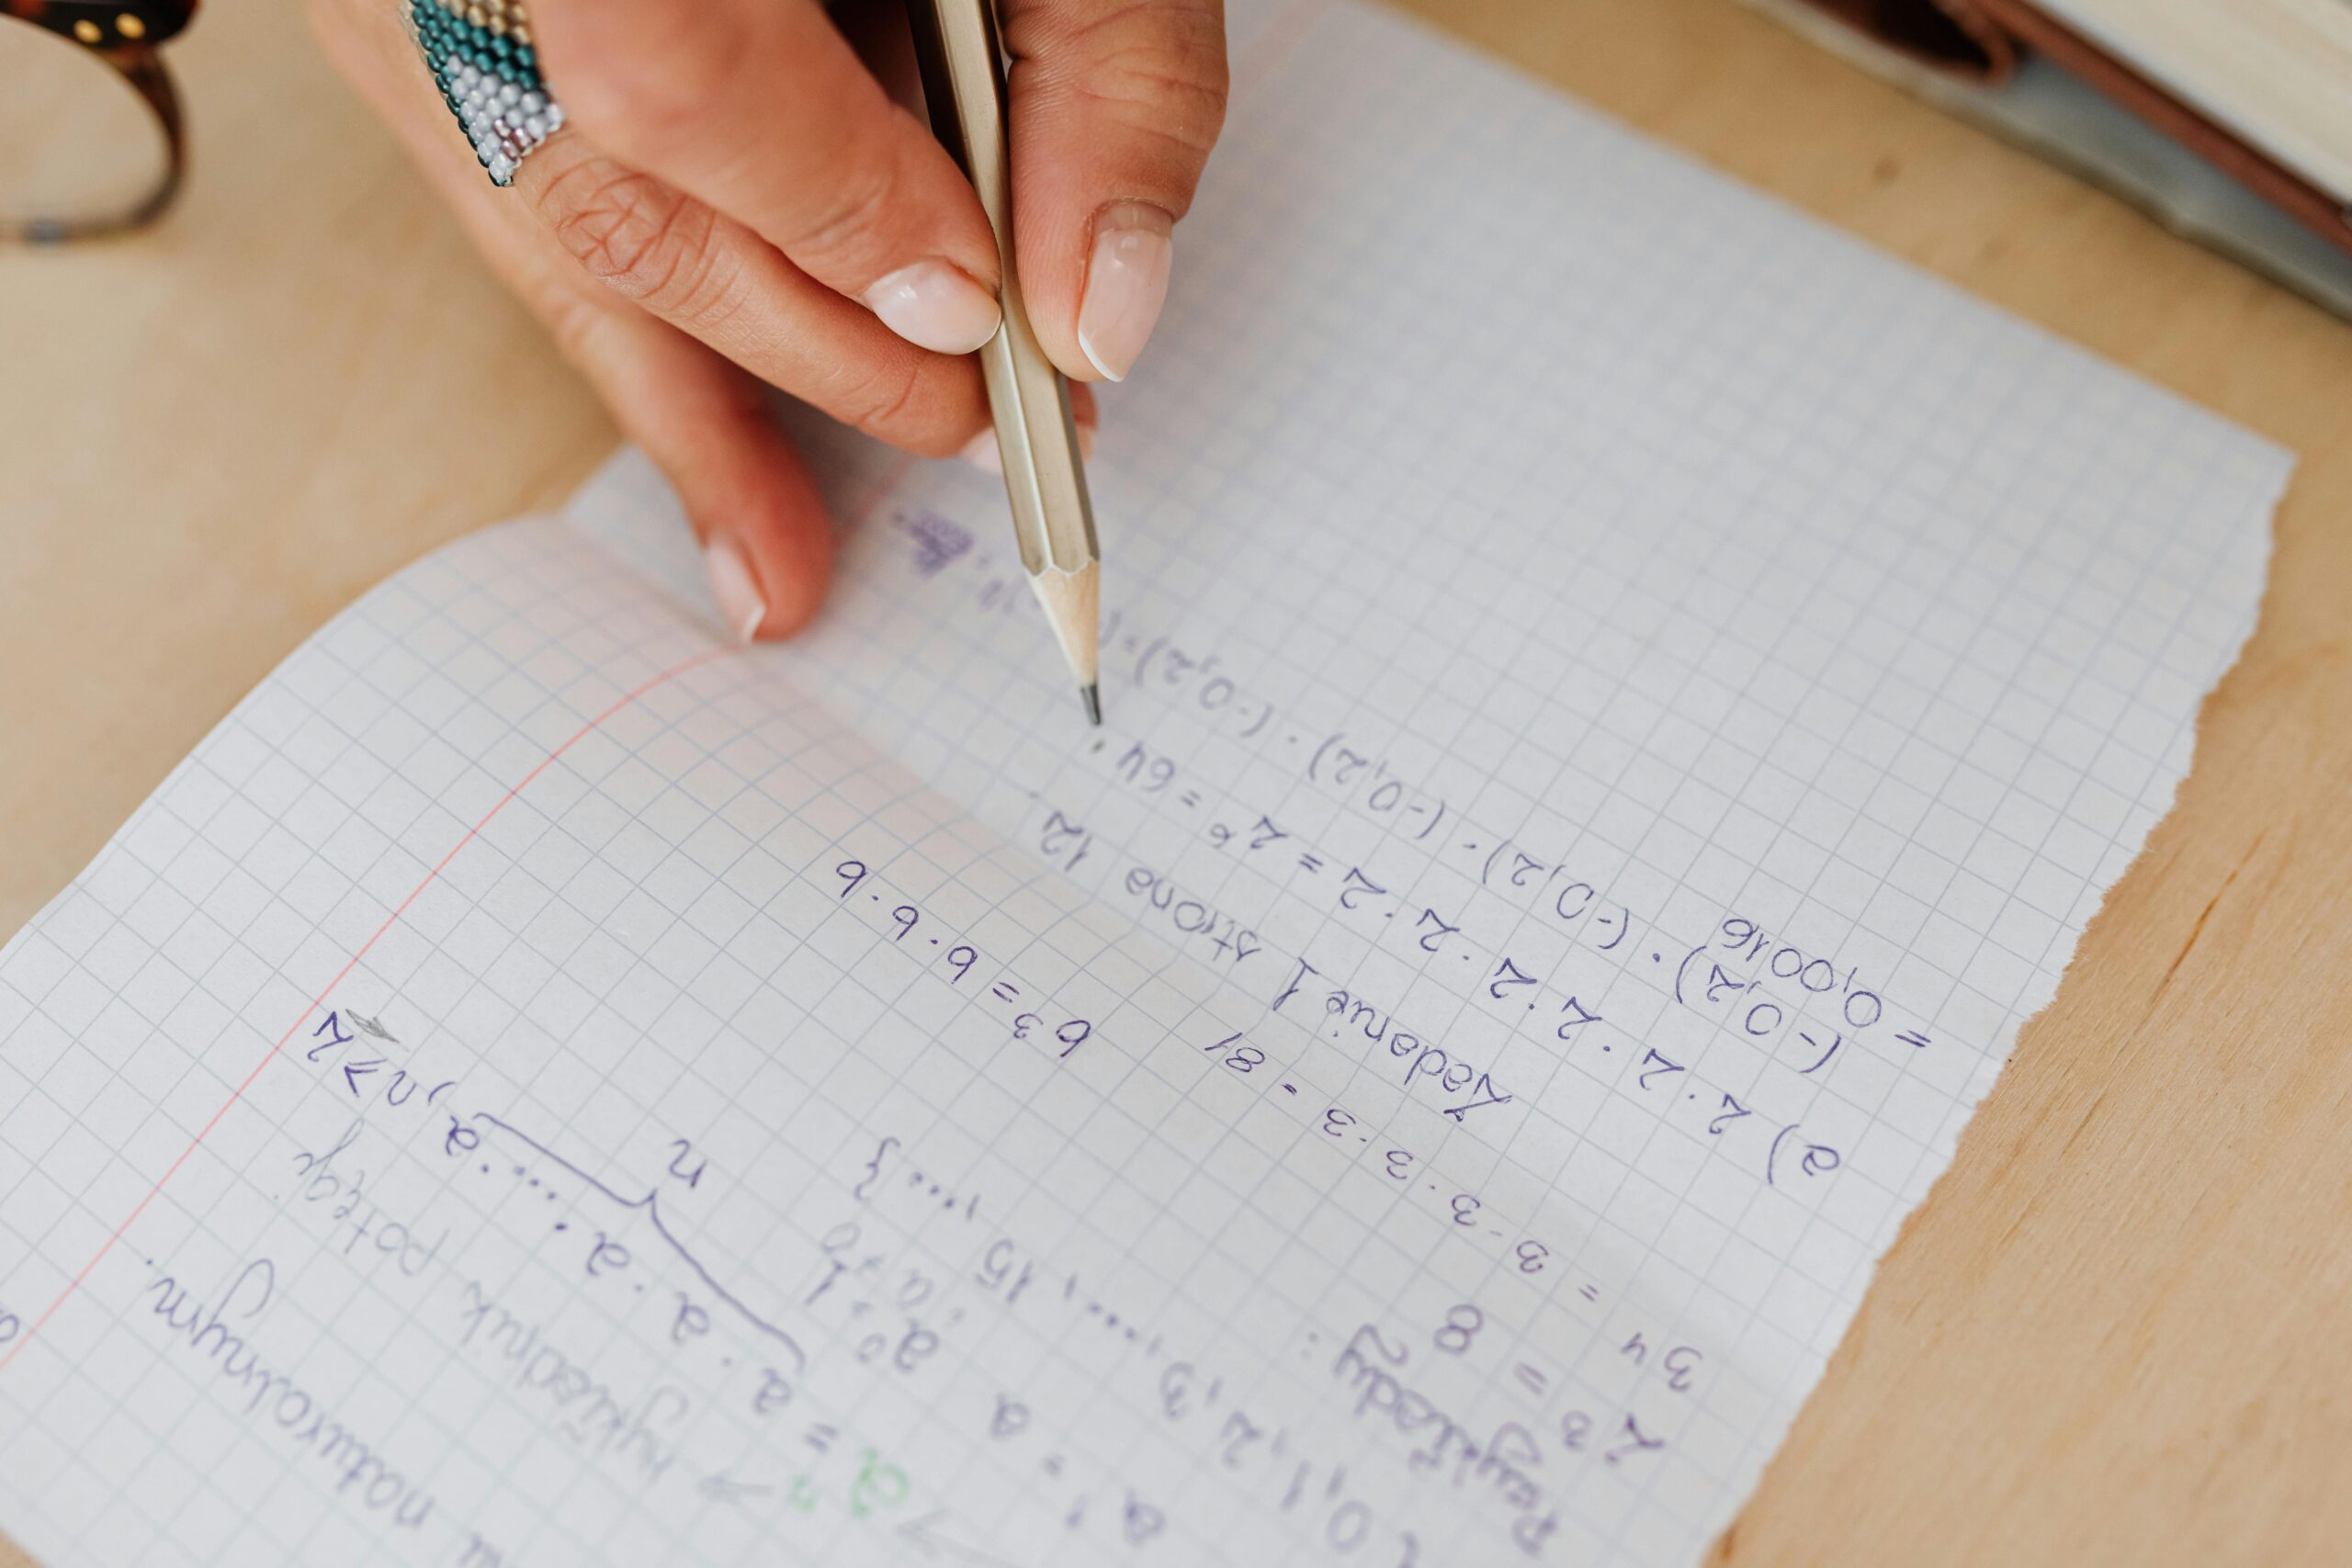 naturalnym.
wykładnik potęgi
aⁿ = a · a · a · .... · a, n ≥ 2
n
a¹ = a a⁰ = 1, a ≠ 0
{0, 1, 2, 3, ..., 15, ...}
Przykłady:
2³ = 8
3⁴ = 3 · 3 · 3 · 3 = 81 b³ = b · b · b
Zadanie 1 strona 12.
a) 2 · 2 · 2 · 2 · 2 · 2 = 2⁶ = 64
(-0,2) · (-0,2) · (-0,2) · (-0,2) =
= 0,0016